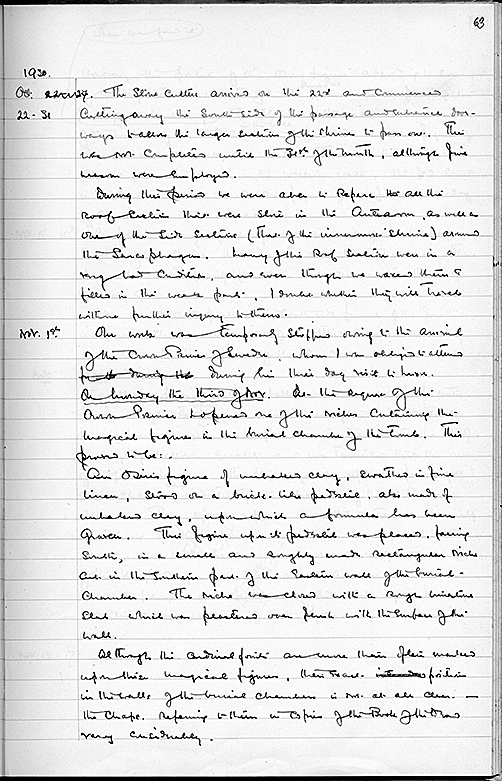 63
1930.
Oct. 22nd. The Stone Cutters arrived on the 22nd and commenced
22-31 Cutting away the South side of the passage and entrance door-
ways to allow the larger sections of the shrines to pass out. This
was not completed until the 31st of the month, although five
masons were employed.
During this period we were able to repair all the
Roof sections that were still in the Anteroom, as well as
one of the side sections (that of the innermost shrine) around
the Sarcophagus. Many of the Roof sections were in a
very bad condition, and even though we waxed them &
filled in the weak parts, I doubt whether they will travel
without further injury to them.
Nov. 1st Our work was temporarily stopped owing to the arrival
of the Crown Prince of Sweden, whom I was obliged to attend
during his three day visit to Luxor.
On Monday the third of Nov. At the request of the
Crown Prince I opened one of the niches containing the
magical figures in the burial chamber of the Tomb. This
proved to be:-
An Osiris figure of unbaked clay, swathed in fine
linen, stood on a brick-like pedestal, also made of
unbaked clay, upon which a formula has been
graven. This figure upon its pedestal was placed, facing
South, in a small and roughly made rectangular niche
cut in the Southern part of the Eastern wall of the burial-
chamber. The niche was closed with a rough limestone
slab which was plastered over flush with the surface of the
wall.
Although the cardinal points are more than often marked
upon these magical figures, their exact position
in the walls of the burial chambers is not at all clear. —
the Chaps. referring to them in copies of the Book of the Dead
vary considerably.